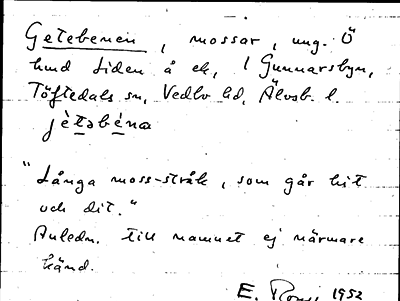 Getebenen, mossar, ung. Ö
hund Liden å ek, i Gunnarsbyn,
Töftedals sn, Vedbo hd, Älvsb. l.
jètəbéna
"Långa moss-stråk, som går hit
och dit."
Anledn. till namnet ej närmare
känd.
E. 1952